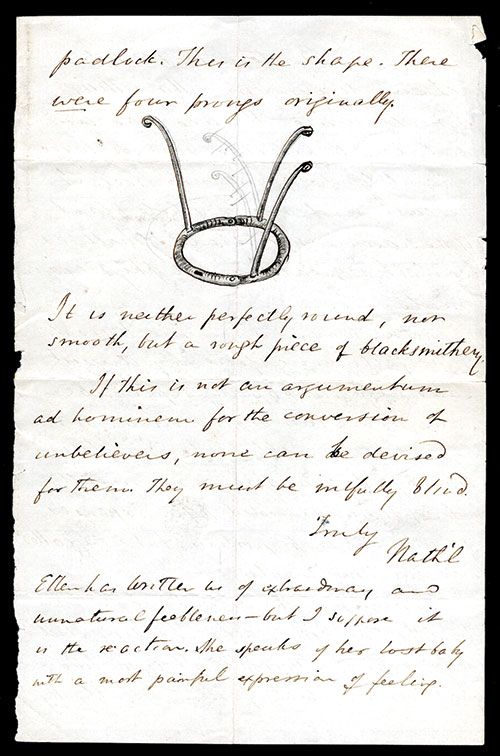 padlock. This is the shape. There
were four prongs originally.
It is neither perfectly round, nor
smooth, but a rough piece of blacksmithery.
If this is not an argumentum
ad hominem for the conversion of
unbelievers, none can be devised
for them. They must be wilfully blind.
Truly
Nath'l
Ellen has written us of extraordinary and
unnatural feebleness—but I suppose it
is the reaction. She speaks of her lost baby
with a most painful expression of feeling.